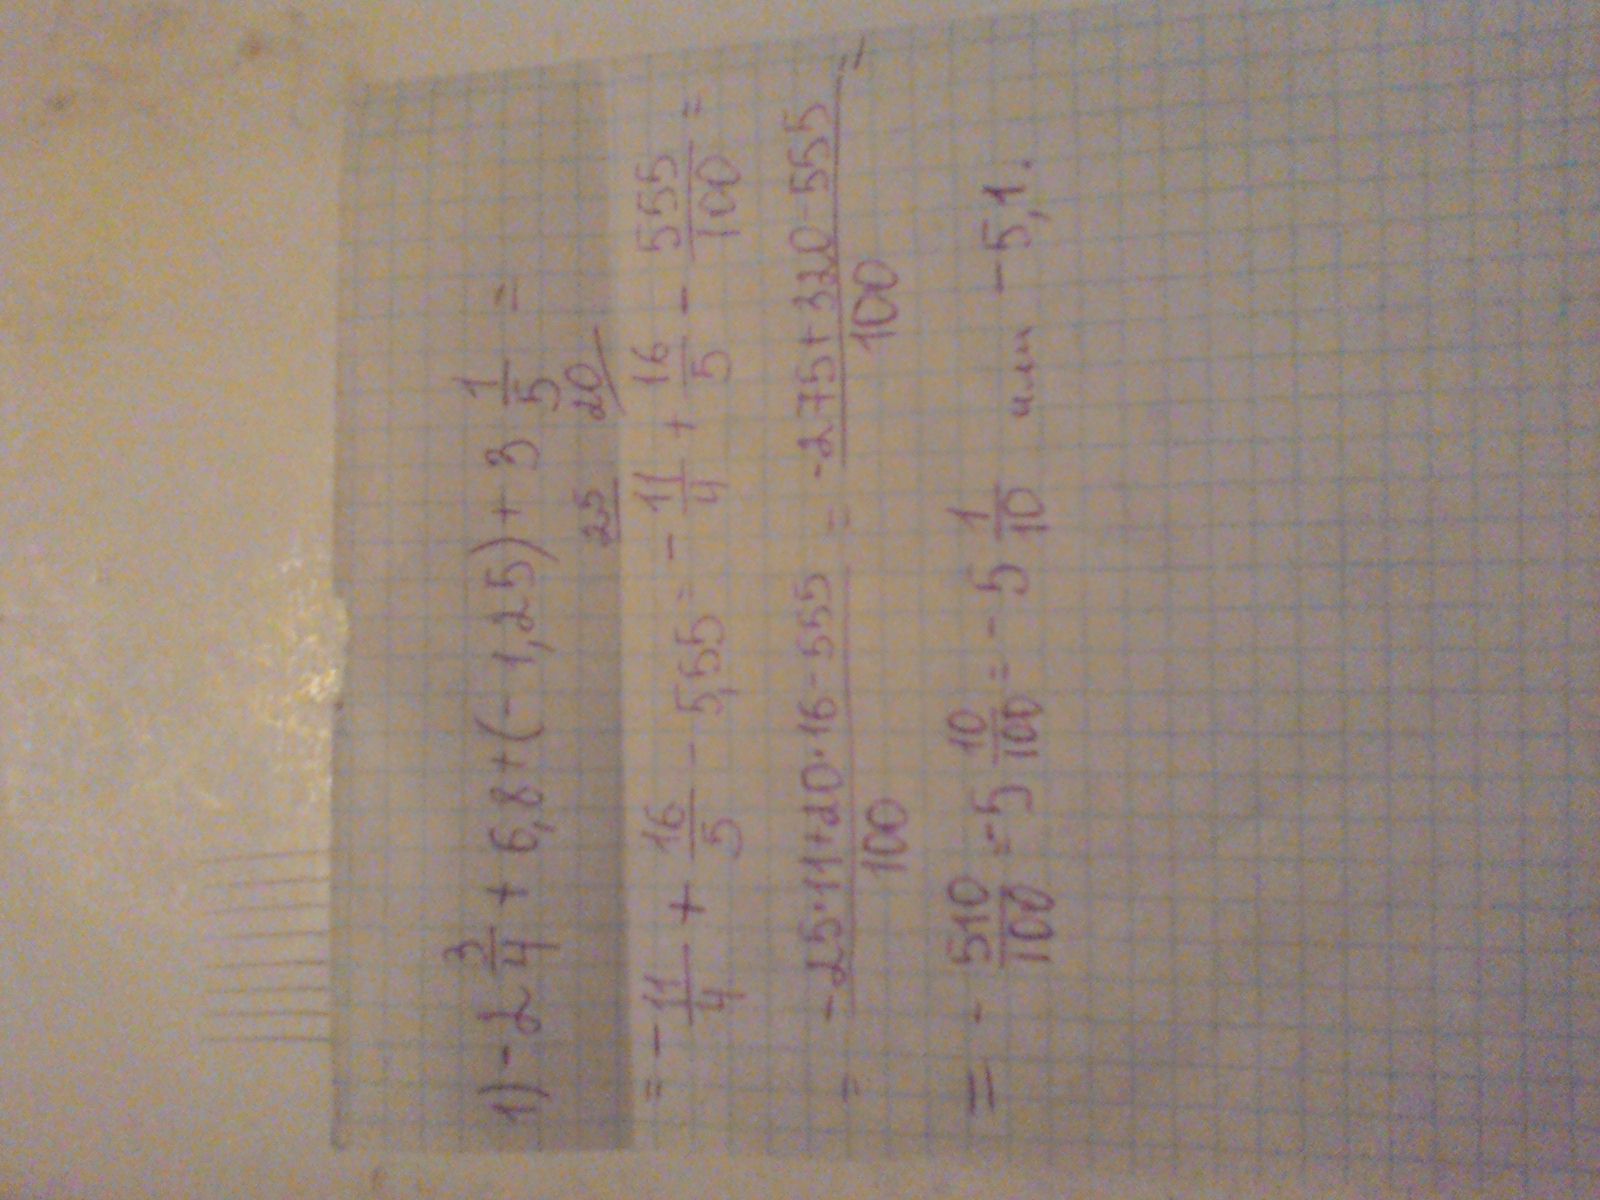 1) - 2 3/4 + 6,8 + (- 1,25) + 3 1/5 =
25 20
= - 11/4 + 16/5 - 5,55 = - 11/4 + 16/5 - 555/100 =
= (-25·11+20·16-555)/100 = (-275+320-555)/100 =
= - 510/100 = -5 10/100 = - 5 1/10 или - 5,1.